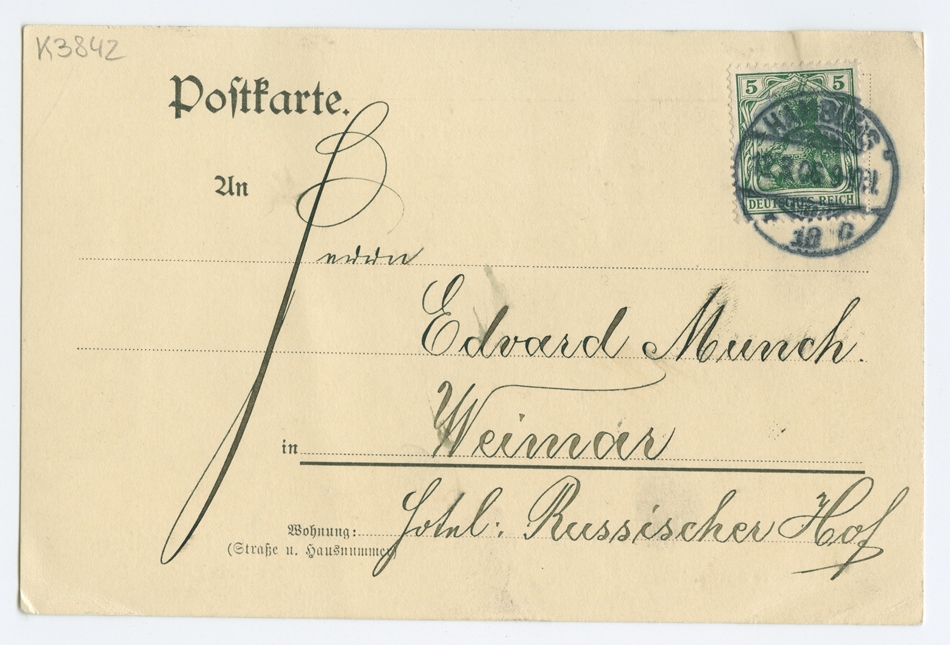 K3842
Postkarte.
5 5
HAMBURG
DEUTSCHES REICH
An
Herrn
Edvard Munch.
in Weimar
Wohnung: Hotel: Russischer Hof
(Straße u. Hausnummer)